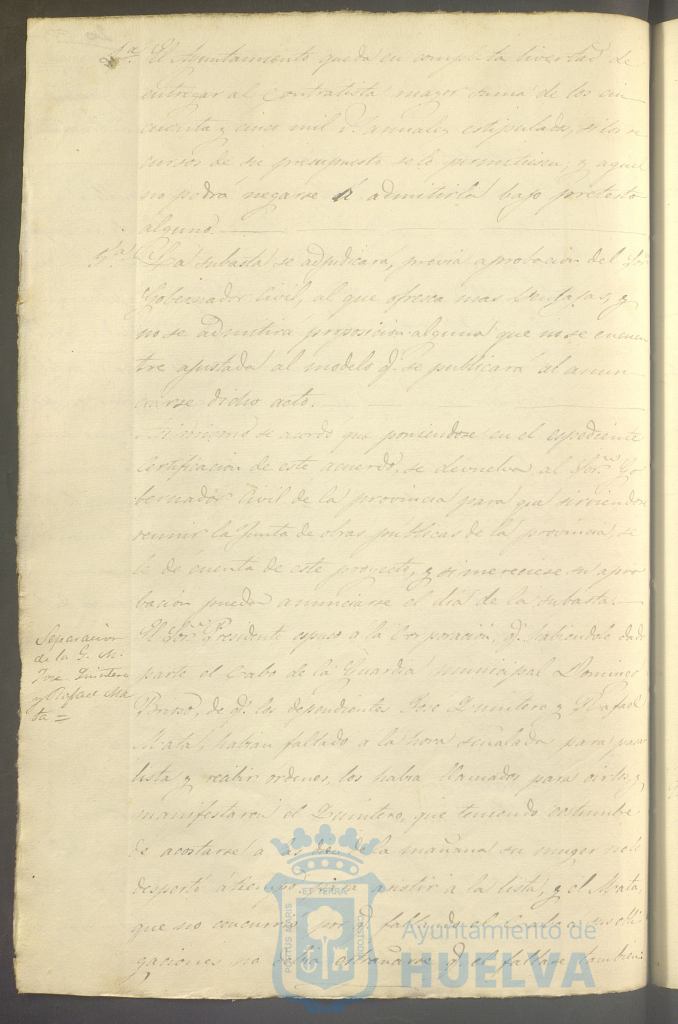 4ª. El Ayuntamiento queda en completa livertad de
entregar al Contratista mayor suma de los cin
cuenta y cinco mil r.^s anuales estipulados, si los re
cursos de su presupuesto se lo permitiesen; y aquel
no podrá negarse á admitirla bajo pretesto
alguno.
5ª. La subasta se adjudicará, previa aprobacion del Sor.
Gobernador Civil, al que ofresca mas ventajas, y
no se admitira proposicion alguna que no se encuen
tre ajustada al modelo q.^e se publicará al anun
ciarse dicho acto.
Asimismo se acordó que poniendose en el espediente
certificacion de este acuerdo, se devuelva al Sor. Go
bernador Civil de la provincia para que sirviendose
reunir la Junta de obras publicas de la provincia, se
le dé cuenta de este proyecto, y si mereciese su apro
bacion pueda anunciarse el dia de la subasta.
Separacion
de la G. M.
José Quintero
y Rafael Ma
ta =
El Sor. Presidente espuso a la Corporacion, q.^e habiendole dado
parte el Cabo de la Guardia municipal Domingo
de q.^e los dependientes José Quintero y Rafael
Mata, habian faltado a la hora señalada para pasar
lista y recibir ordenes, los habia llamados para oirlos, y
manifestaron el Quintero, que teniendo costumbre
de acostarse a las de la mañana su muger no le
despertó á tiempo para asistir a la lista, y el Mata,
que no concurrió por q.^e faltando el Cabo a sus obli
gaciones no debia estrañarse q.^e el faltase tambien
PORTUS MARIS
ET TERRÆ
CUSTODIA
Ayuntamiento de
HUELVA